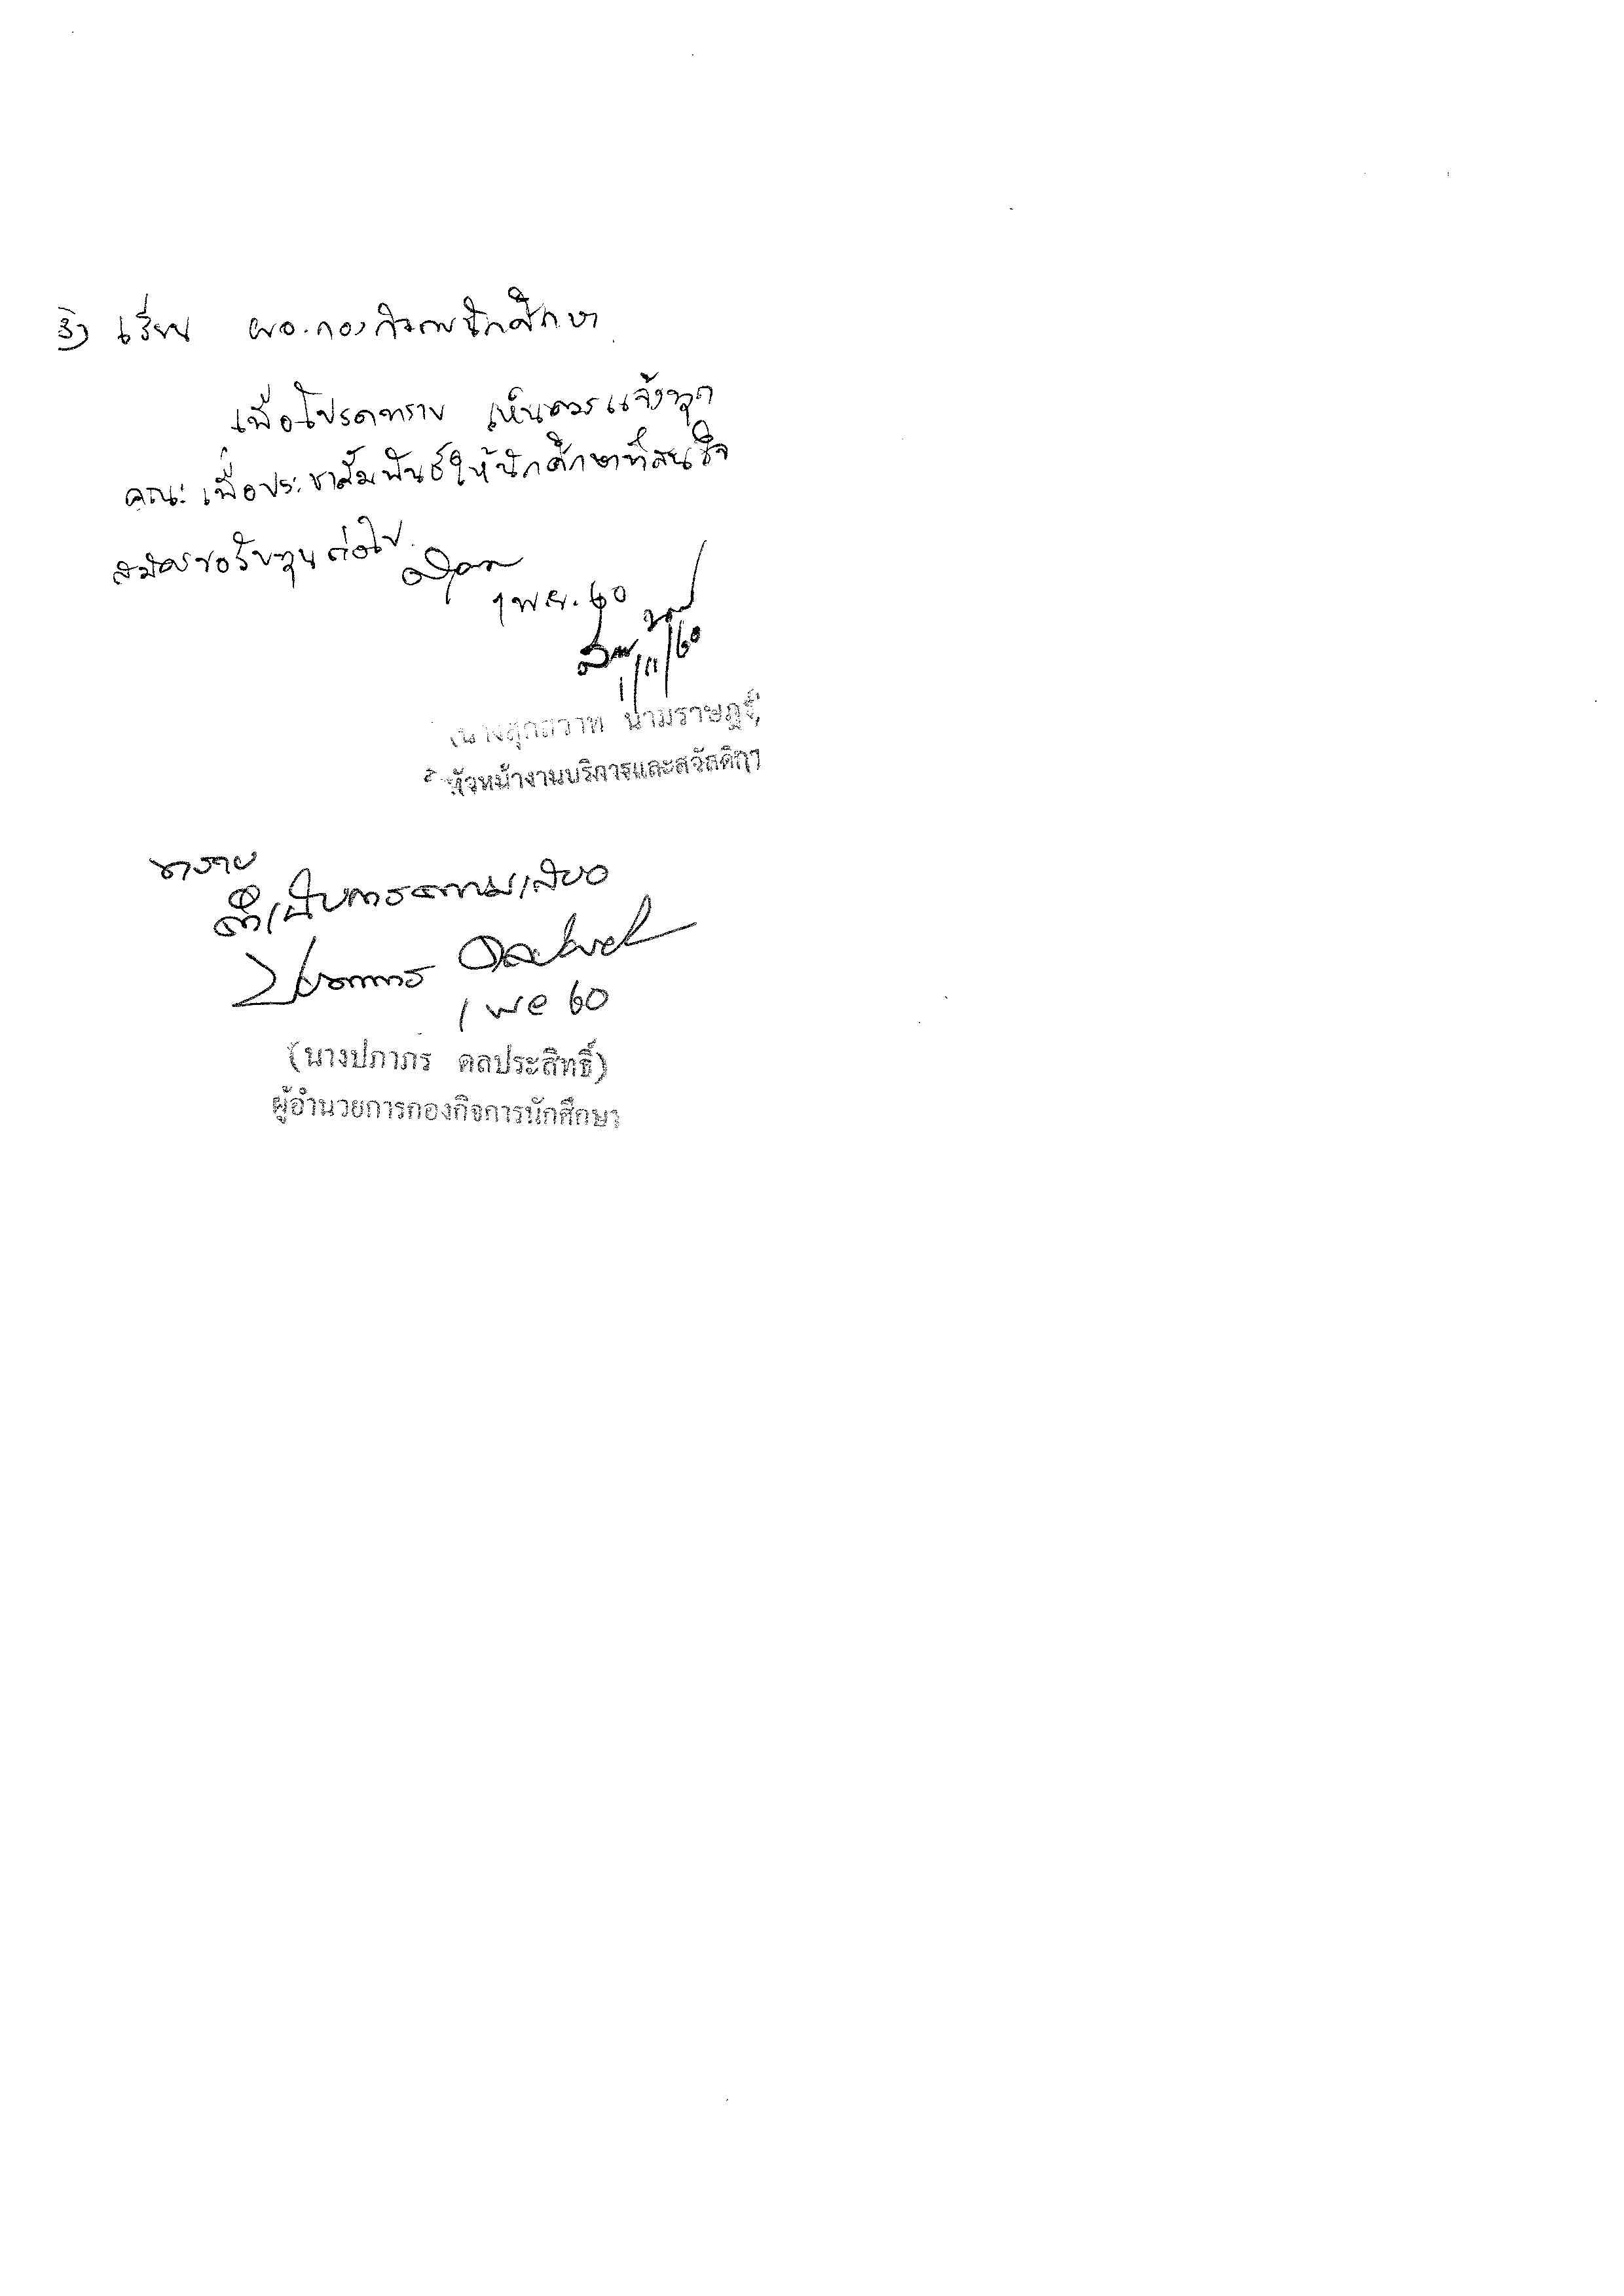 เรียน ผอ.กองกิจการนักศึกษา
เพื่อโปรดทราบ เห็นควรแจ้งทุก
คณะ เพื่อประชาสัมพันธ์ให้นักศึกษาที่สนใจ
สมัครขอรับทุนต่อไป
1 พ.ย. 60
1/11/60
นามราษฎร์
หัวหน้างานบริการและสวัสดิกา
ทราบ
ดำเนินการตามเสนอ
1 พย 60
(นางปภาภร ดลประสิทธิ์)
ผู้อำนวยการกองกิจการนักศึกษา